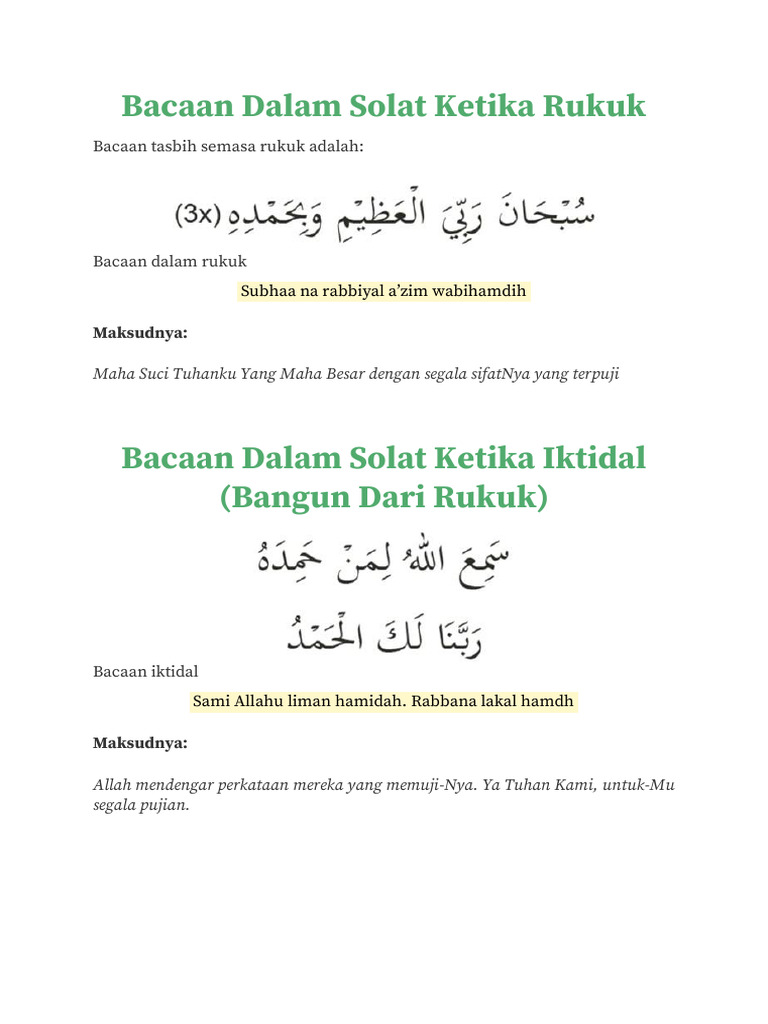 Bacaan Dalam Solat Ketika Rukuk
Bacaan tasbih semasa rukuk adalah:
سُبْحَانَ رَبِّيَ الْعَظِيْمِ وَبِحَمْدِهِ (3x)
Bacaan dalam rukuk
Subhaa na rabbiyal a’zim wabihamdih
Maksudnya:
Maha Suci Tuhanku Yang Maha Besar dengan segala sifatNya yang terpuji
Bacaan Dalam Solat Ketika Iktidal
(Bangun Dari Rukuk)
سَمِعَ اللهُ لِمَنْ حَمِدَهُ
رَبَّنَا لَكَ الْحَمْدُ
Bacaan iktidal
Sami Allahu liman hamidah. Rabbana lakal hamdh
Maksudnya:
Allah mendengar perkataan mereka yang memuji-Nya. Ya Tuhan Kami, untuk-Mu
segala pujian.